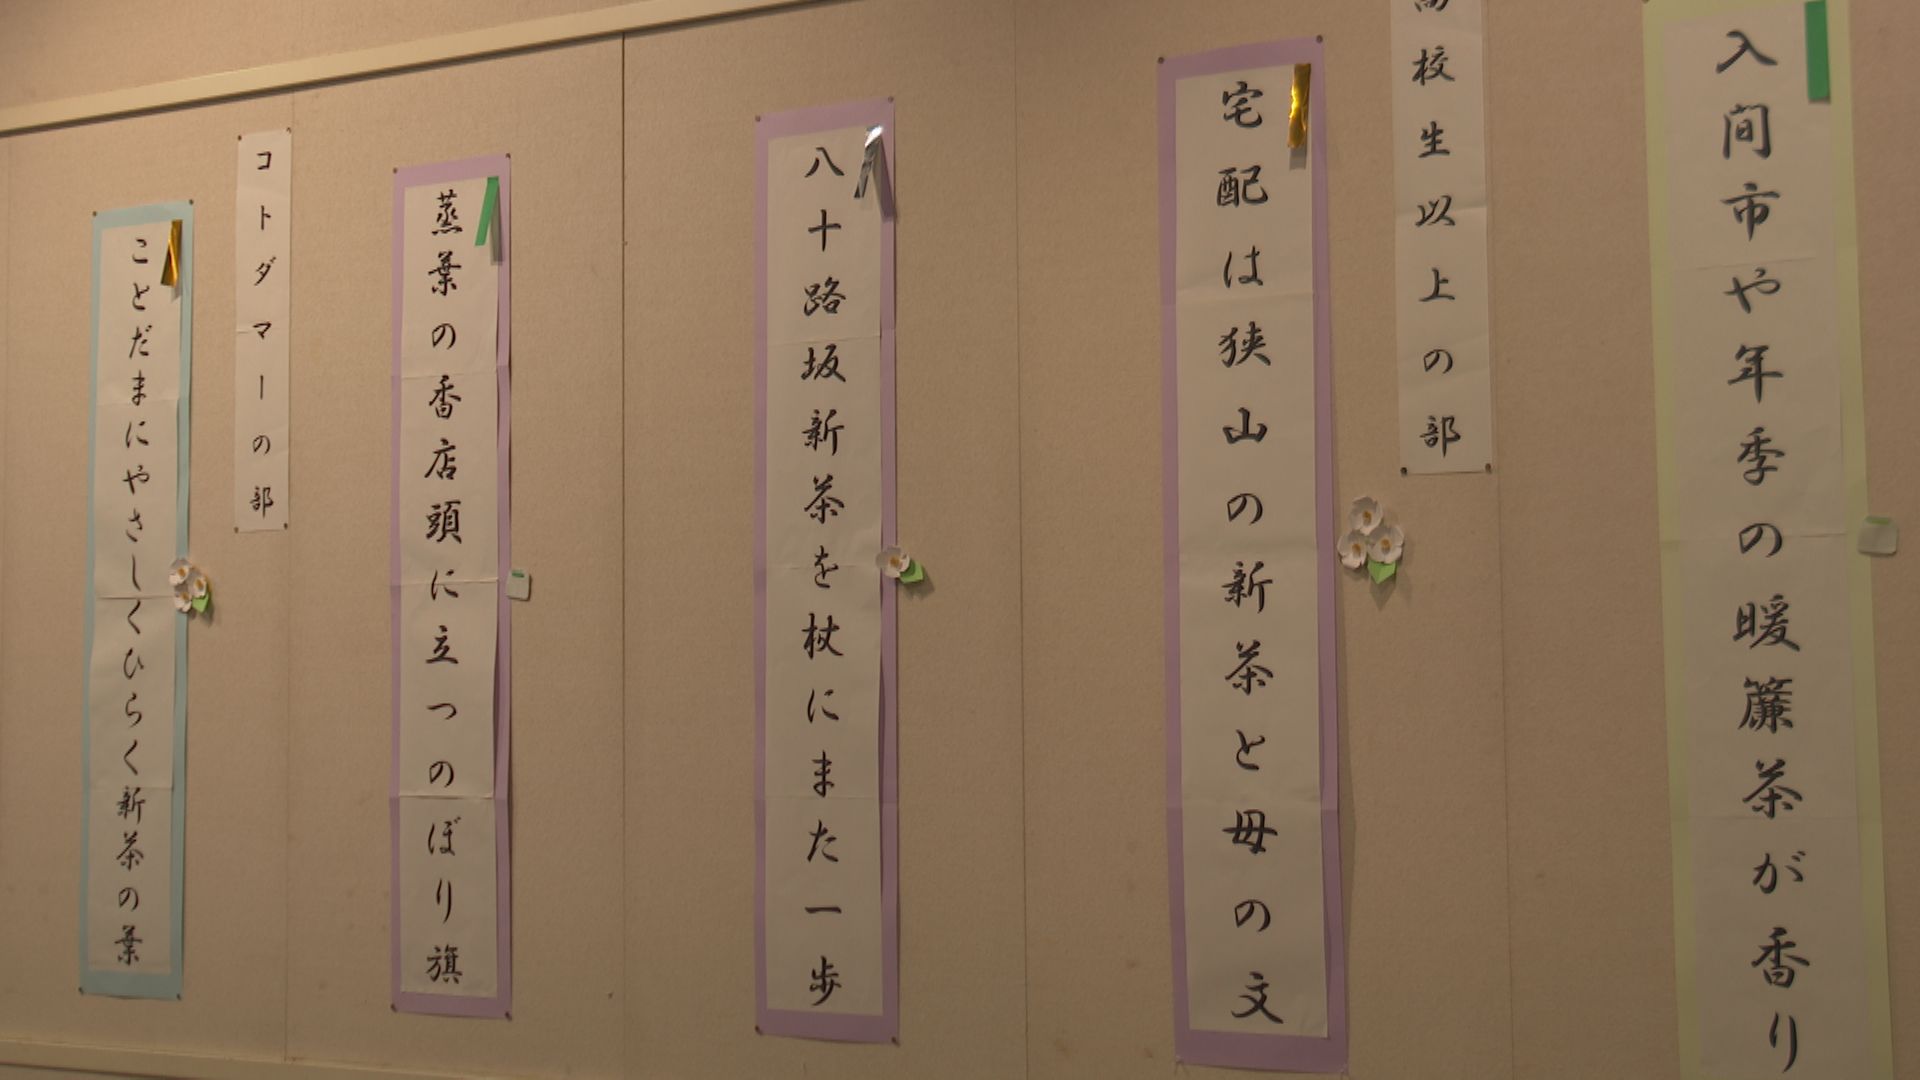 入間市や年季の暖簾茶が香り
高校生以上の部
宅配は狭山の新茶と母の文
八十路坂新茶を杖にまた一歩
蒸葉の香店頭に立つのぼり旗
コトダマーの部
ことだまにやさしくひらく新茶の葉